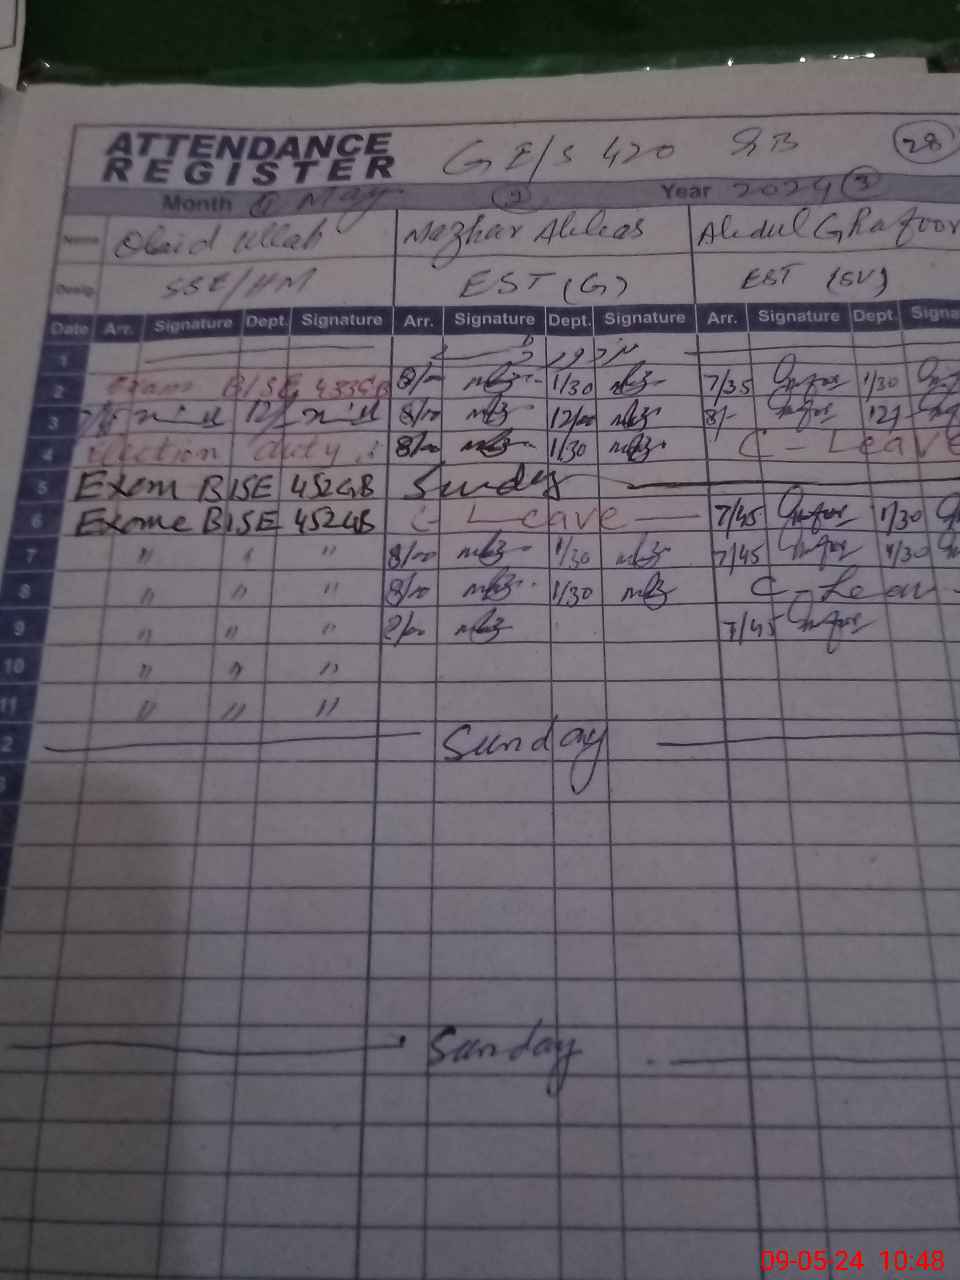 ATTENDANCE REGISTER GE/S 420 GB 28
Month May 2 Year 2024 3
Name Obaid Ullah Mazhar Abbas Abdul Ghafoor
Desig. SSE/HM EST (G) EST (SV)
Date Arr. Signature Dept. Signature Arr. Signature Dept. Signature Arr. Signature Dept. Signa
1
2 Exam BISE 8/00 1/30 7/35 1/30
3 8/00 12/00 8/-
4 Election duty 8/00 1/30 C-Leave
5 Exem BISE 452GB Sunday
6 Exome BISE 452GB C-Leave 7/45 1/30
7 " " " 8/00 1/30 7/45 1/30
8 " " " 8/00 1/30 C-Leav
9 " " " 8/00 7/45
10 " " "
11 " " "
2 Sunday
Sunday
09-05-24 10:48